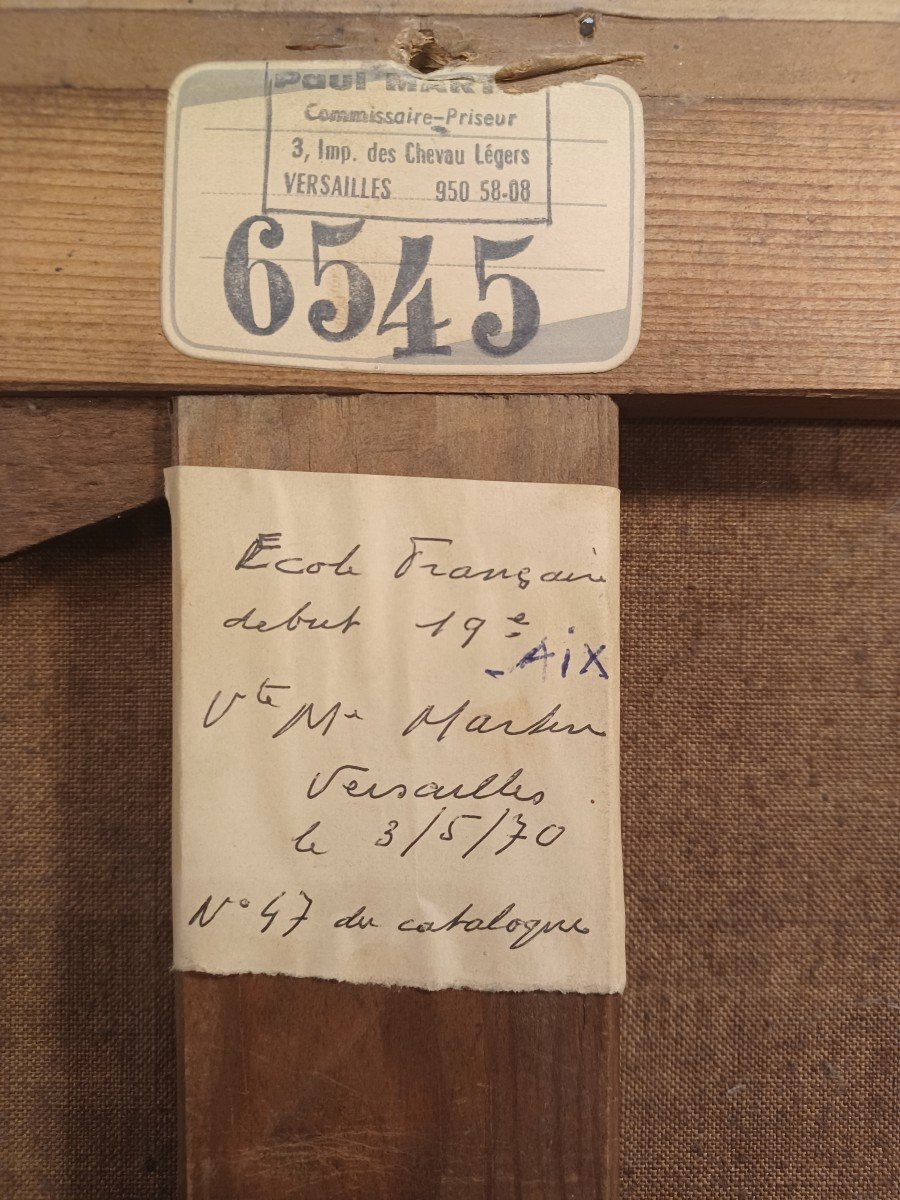 Paul MART
Commissaire-Priseur
3, Imp. des Chevau Légers
VERSAILLES 950 58-08
6545
Ecole Française
debut 19e
- AiX
Vte Me Martin
Versailles
le 3/5/70
N° 47 du catalogue